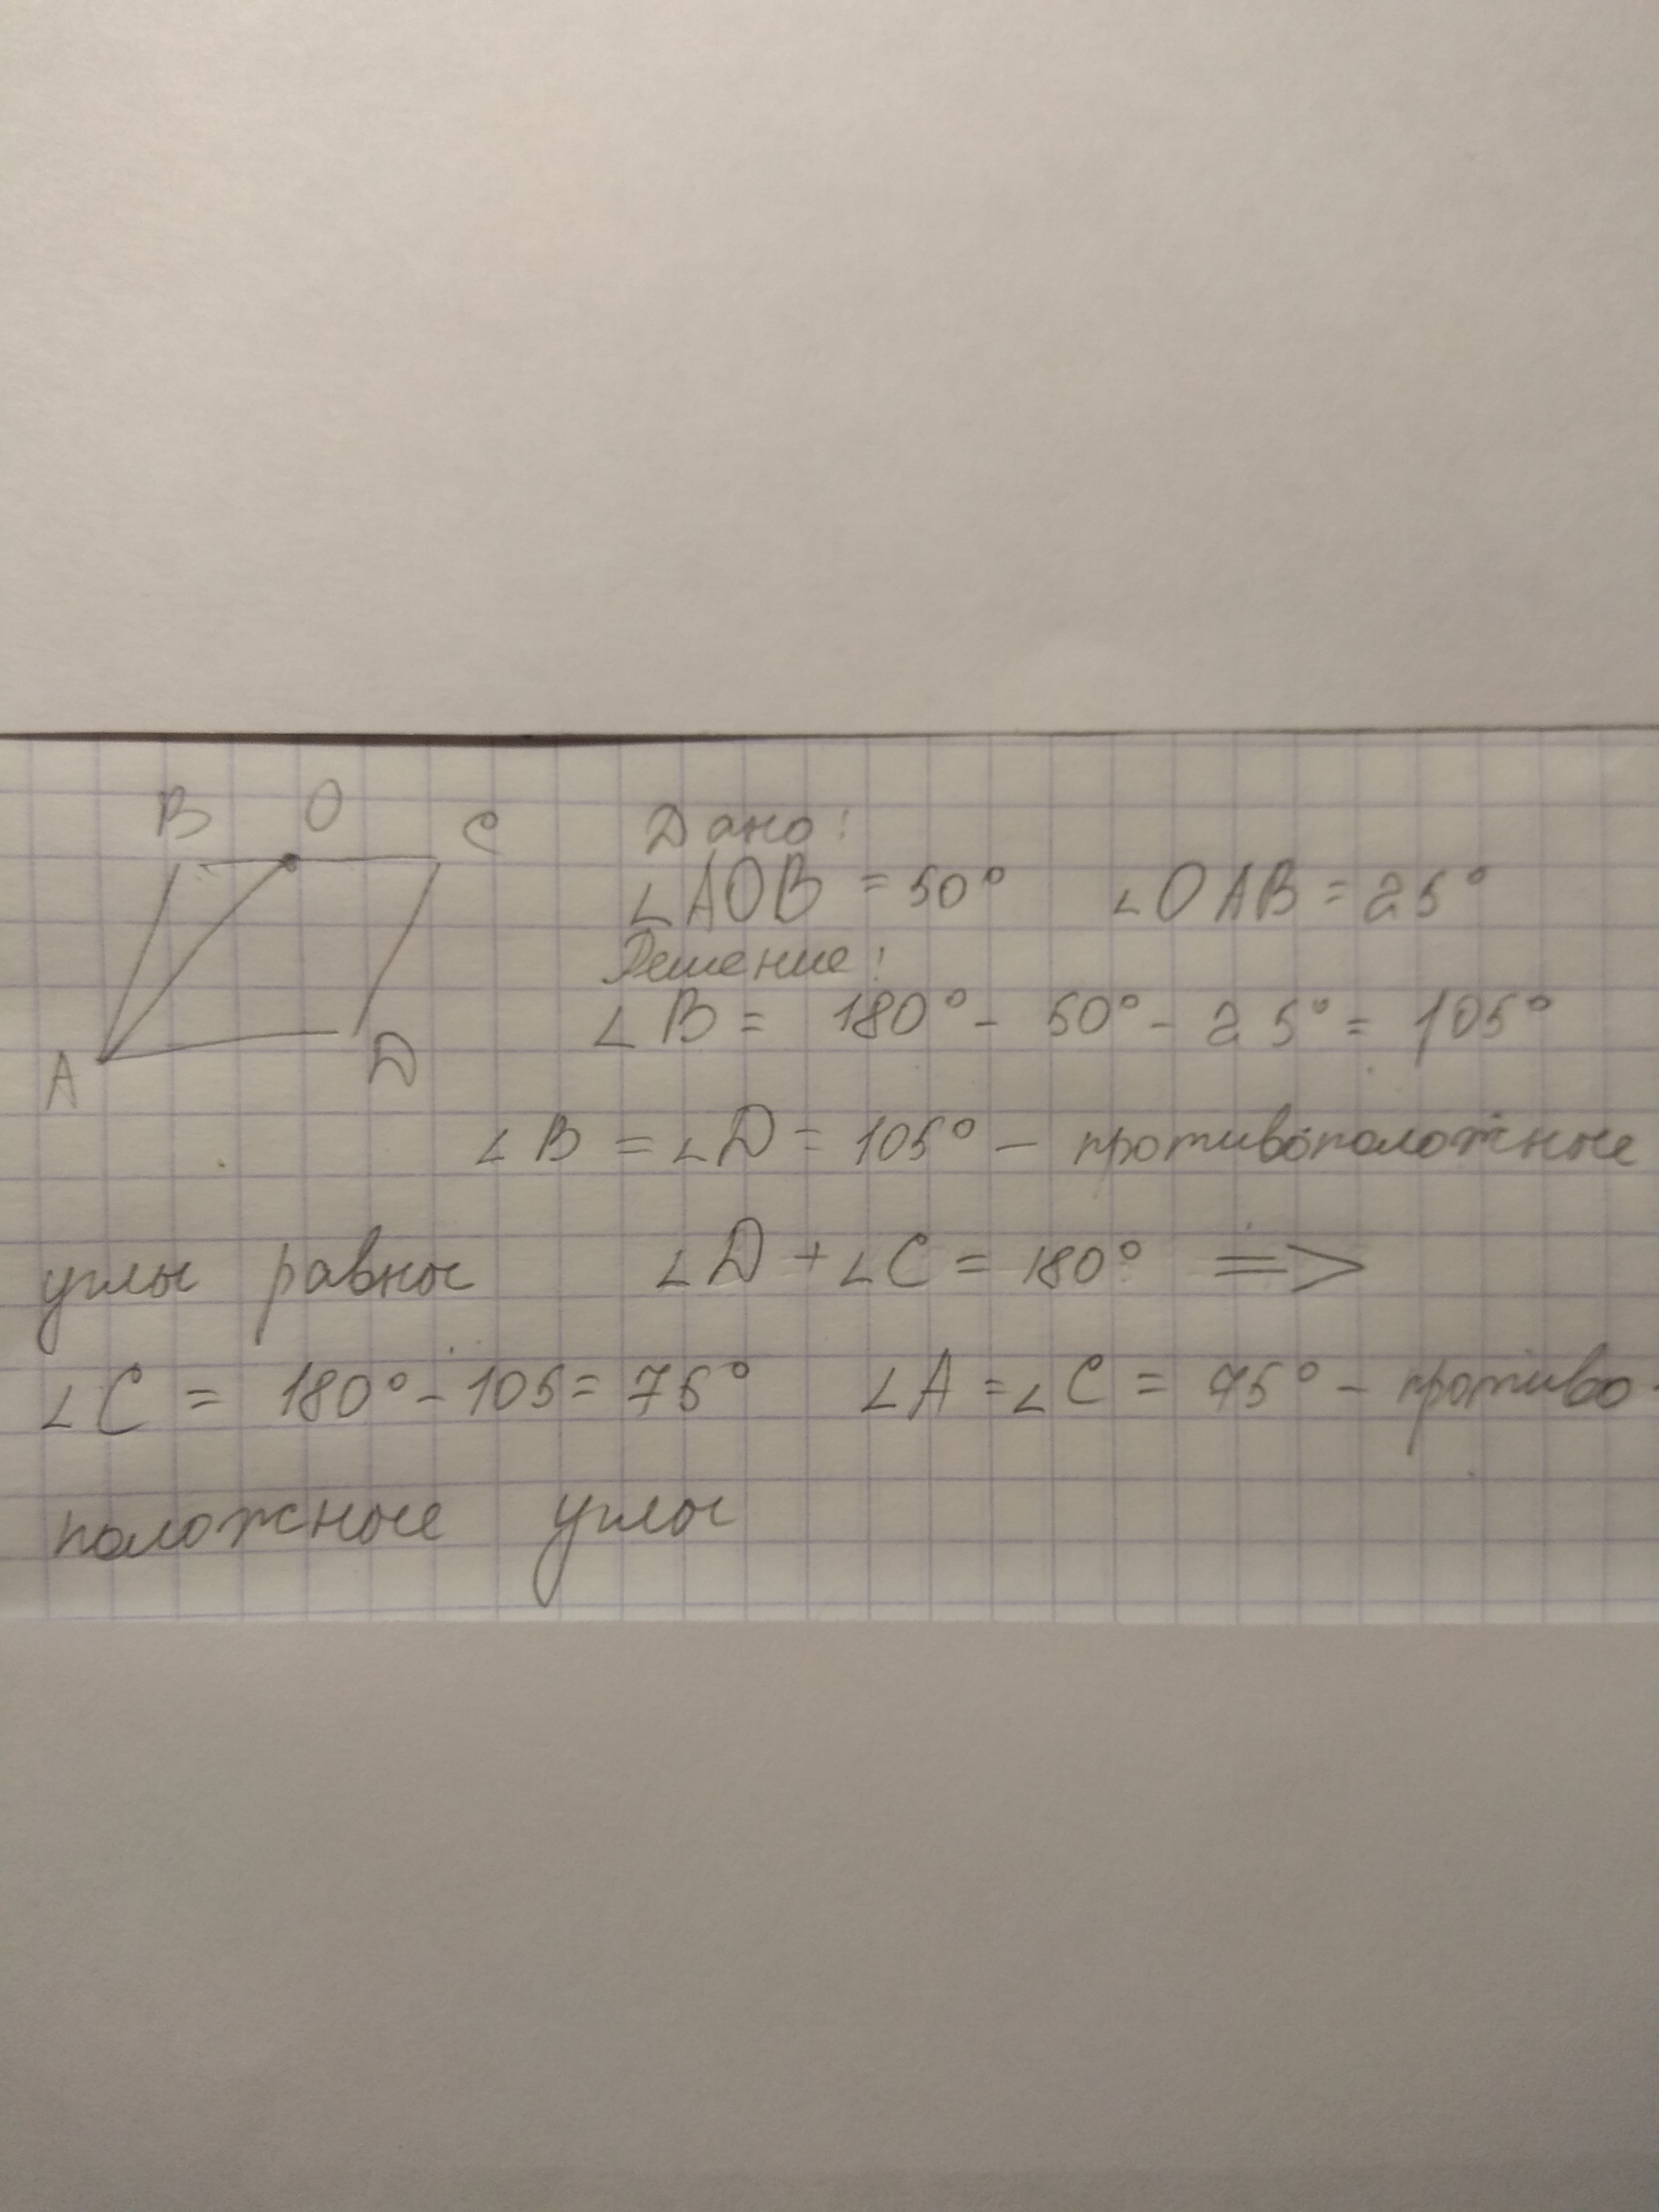 B O C
Дано:
∠AOB = 50° ∠OAB = 25°
Решение:
∠B = 180° - 50° - 25° = 105°
A D
∠B = ∠D = 105° — противоположные
углы равны ∠D + ∠C = 180° =>
∠C = 180° - 105 = 75° ∠A = ∠C = 75° — противо-
положные углы